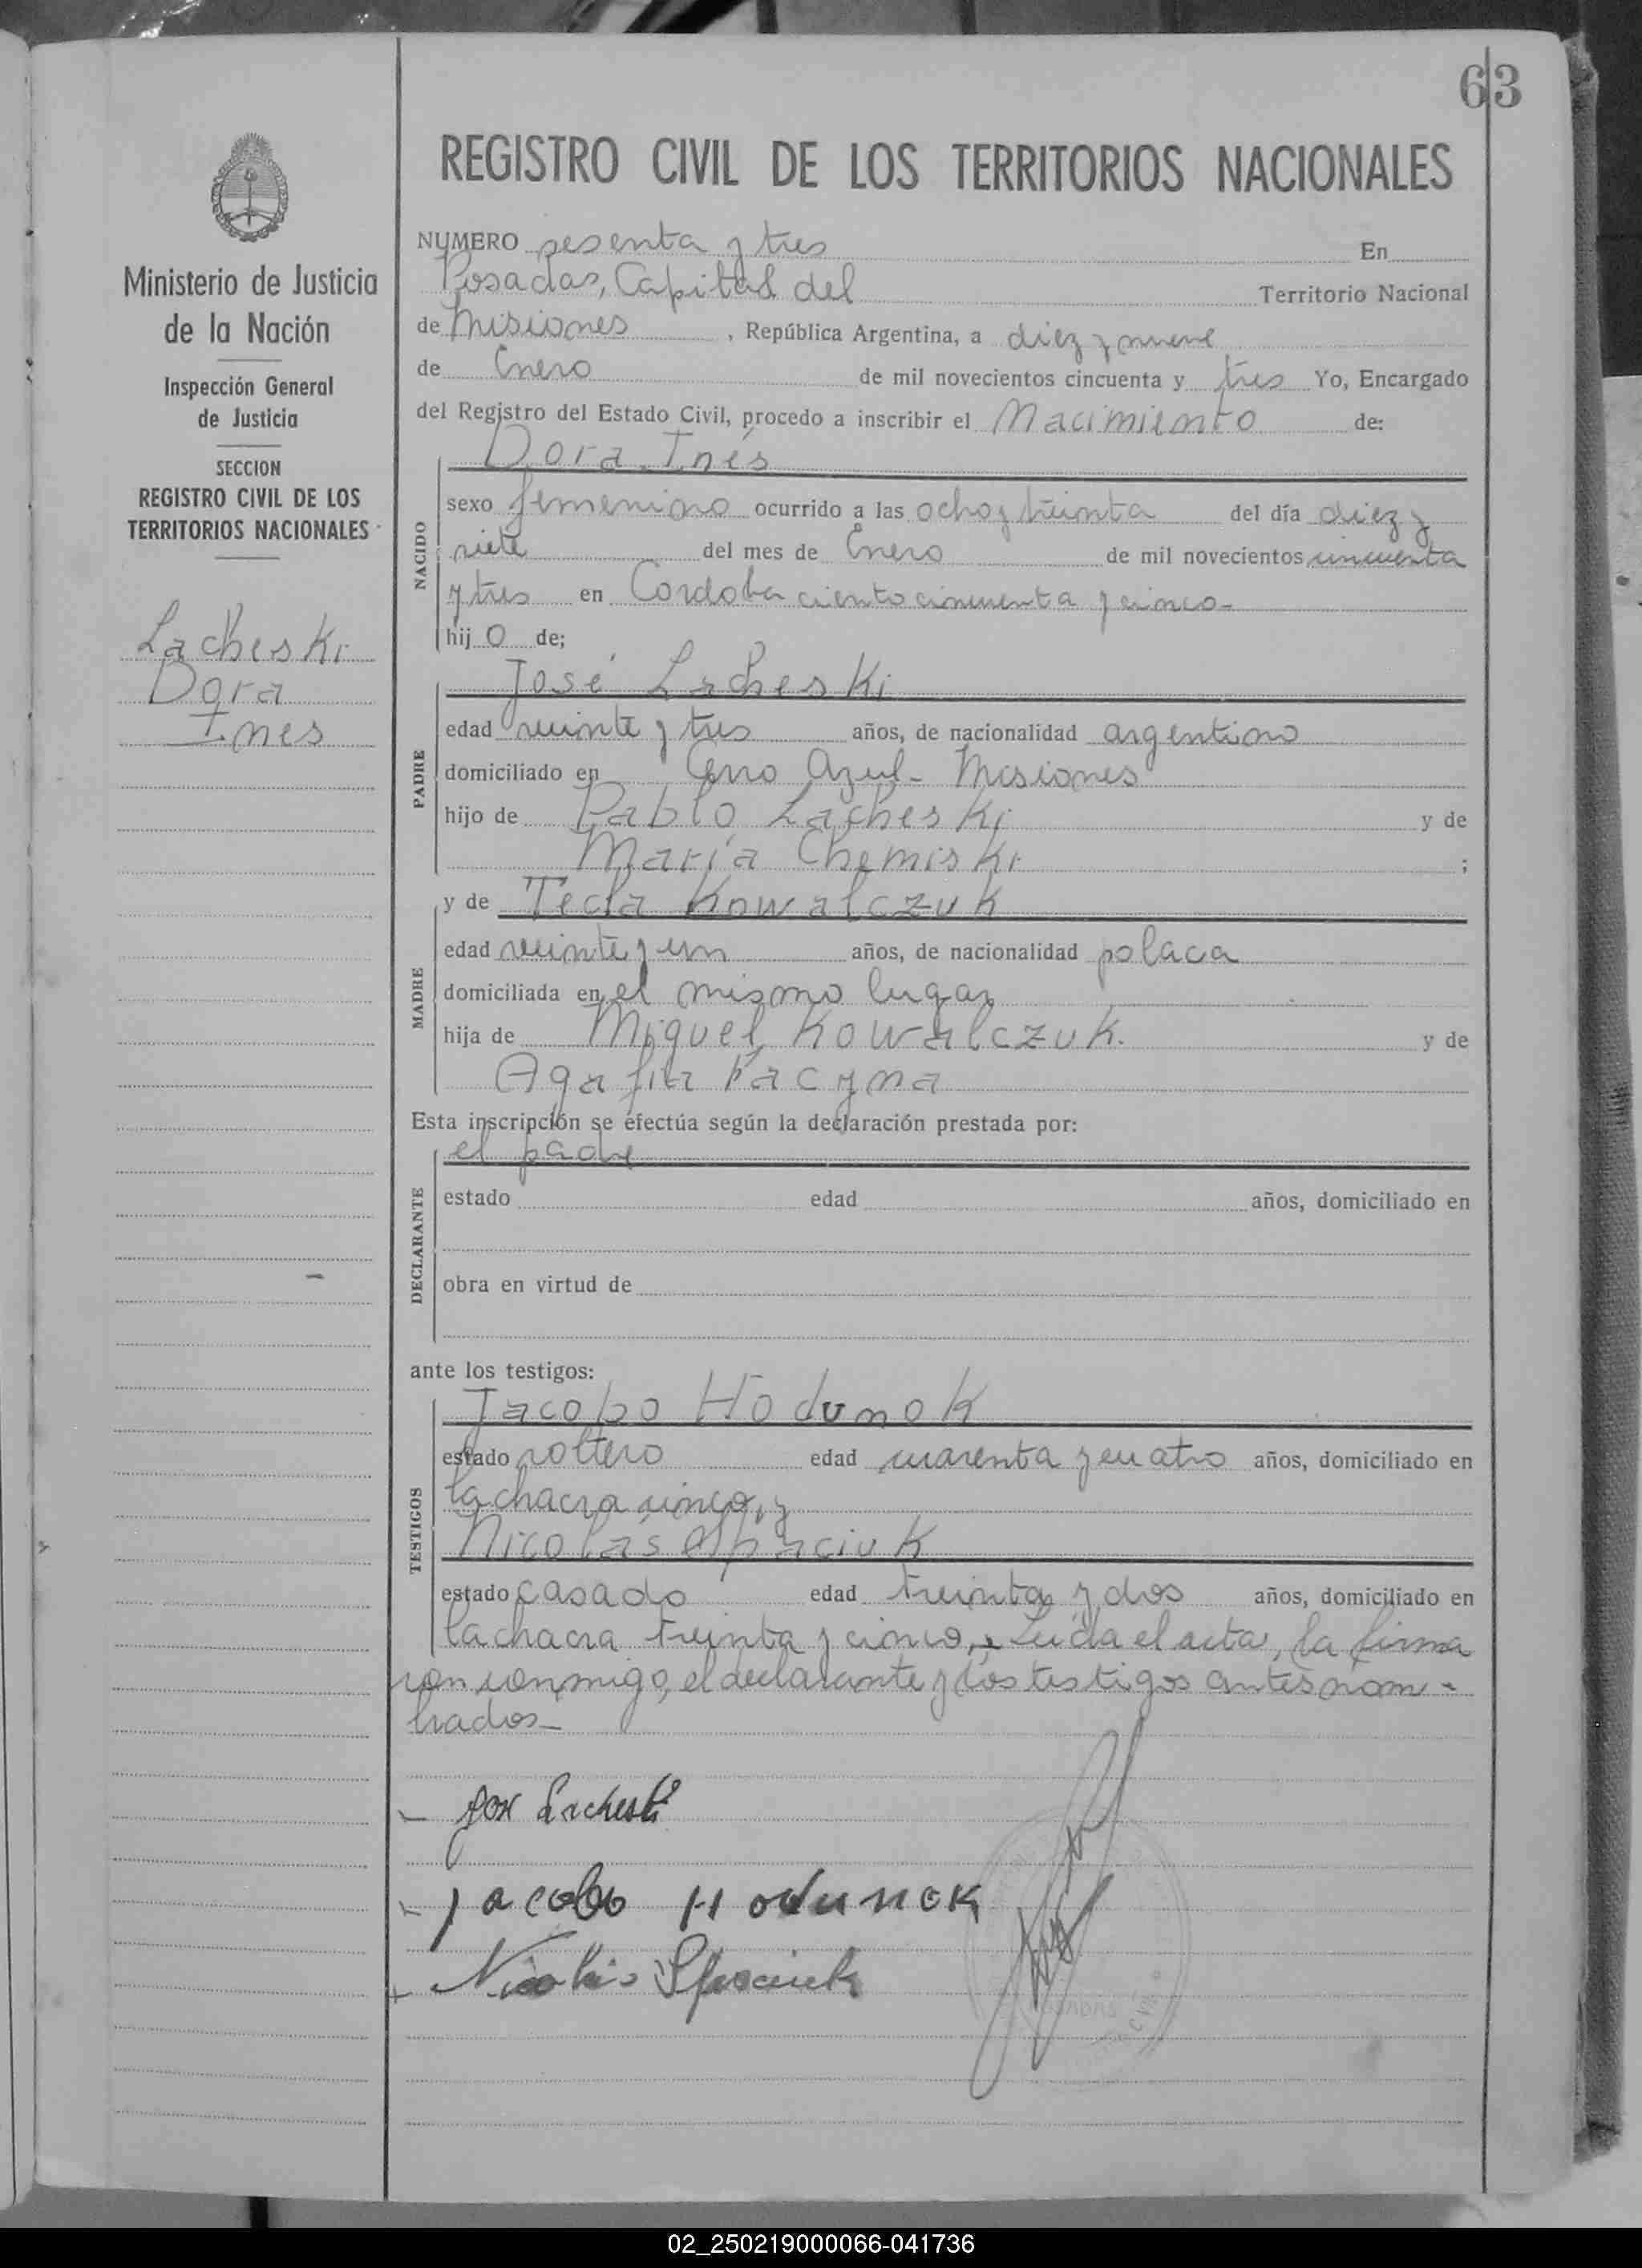 63
REGISTRO CIVIL DE LOS TERRITORIOS NACIONALES
Ministerio de Justicia
de la Nación
Inspección General
de Justicia
SECCION
REGISTRO CIVIL DE LOS
TERRITORIOS NACIONALES
Lacheski
Dora
Ines
NUMERO sesenta y tres En
Posadas, Capital del Territorio Nacional
de Misiones, República Argentina, a diez y nueve
de Enero de mil novecientos cincuenta y tres Yo, Encargado
del Registro del Estado Civil, procedo a inscribir el Nacimiento de:
Dora Inés
NACIDO
sexo femenino ocurrido a las ocho y treinta del día diez y
siete del mes de Enero de mil novecientos cincuenta
y tres en Cordoba ciento cincuenta y cinco-
hij o de;
José Lacheski
PADRE
edad veinte y tres años, de nacionalidad argentino
domiciliado en Cerro Azul- Misiones
hijo de Pablo Lacheski y de
María Chemiski ;
y de Tecla Kowalczuk
MADRE
edad veinte y un años, de nacionalidad polaca
domiciliada en el mismo lugar
hija de Miguel Kowalczuk. y de
Agafia Pacyna
Esta inscripción se efectúa según la declaración prestada por:
el padre
DECLARANTE
estado edad años, domiciliado en
obra en virtud de
ante los testigos:
Jacobo Hodunok
TESTIGOS
estado soltero edad cuarenta y cuatro años, domiciliado en
la chacra cinco, y
Nicolás Spaciuk
estado casado edad treinta y dos años, domiciliado en
la chacra treinta y cinco, Leída el acta, la firma
ron conmigo, el declarante y los testigos antes nom-
brados-
José Lacheski
Jacobo Hodunok
Nicolás
02_250219000066-041736